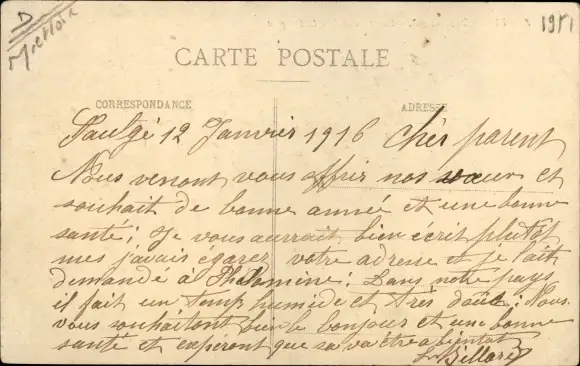 D
1951
CARTE POSTALE
CORRESPONDANCE
ADRESSE
Saulgé 12 Janvier 1916 Chèr parent
Nous venont vous offrir nos vœux et
souhait de bonne année et une bonne
santé; Je vous aurrait bien écrit plutot
mes j'avais égarez votre adresse et je l'ait
demandé à Philomine: Dans notre pays
il fait un temp humide et très doux: Nous
vous souhaitont bien le bonjour et une bonne
santé et experont que sa va être a bientot
Billard